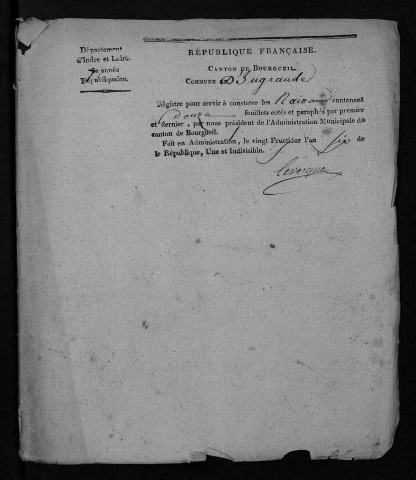 Département
d'Indre et Loire.
7e année
Républicaine.
RÉPUBLIQUE FRANÇAISE.
CANTON DE BOURGUEIL
COMMUNE D'Ingrande
Régistre pour servir à constater les Naissances contenant
Douze feuillets cotés et paraphés par premier
et dernier, par nous président de l'Administration Municipale du
canton de Bourgueil.
Fait en Administration, le vingt Fructidor l'an six de
la République, Une et Indivisible.